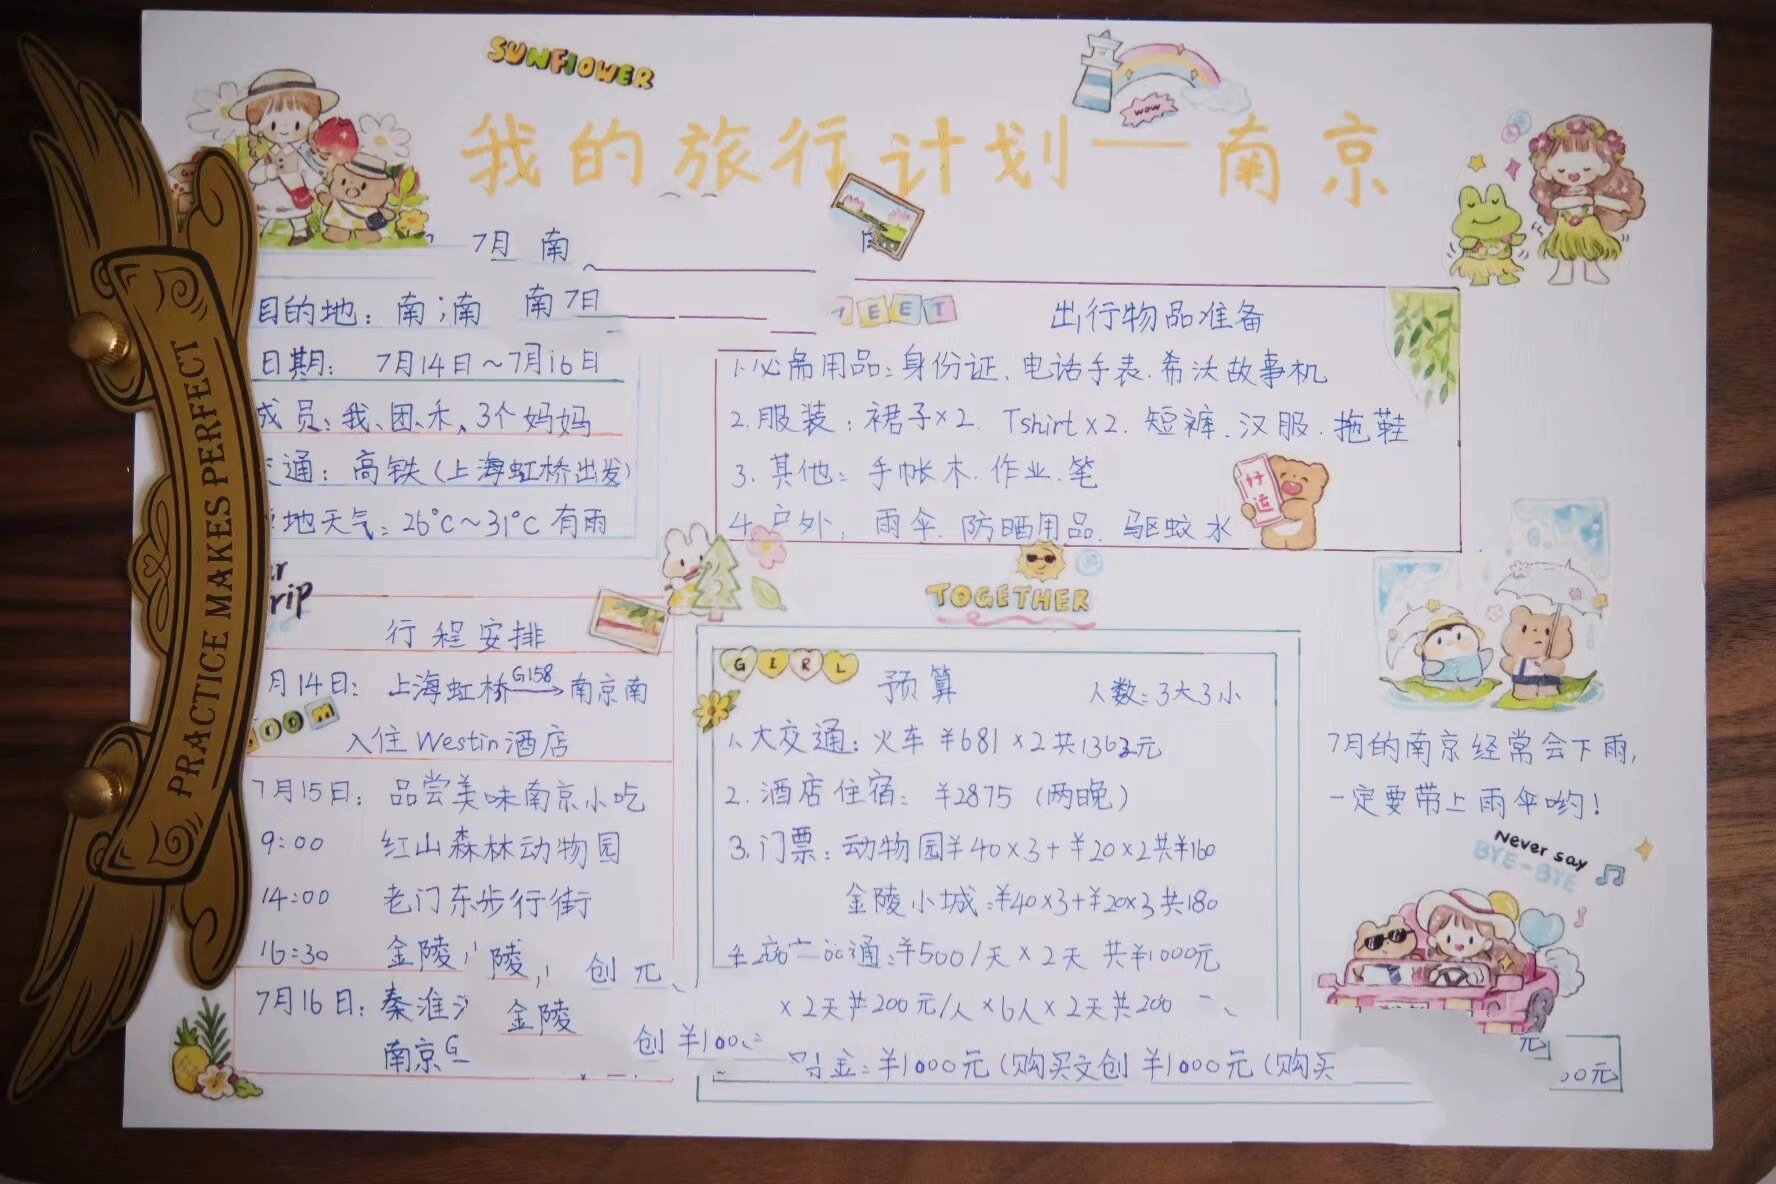 SUNFLOWER
WOW
我的旅行计划—南京
7月 南
目的地：南；南 南7日
日期：7月14日~7月16日
成员：我、团、禾、3个妈妈
交通：高铁（上海虹桥出发）
地天气：26°C~31°C有雨
EET
出行物品准备
1.必备用品：身份证、电话手表.希沃故事机
2.服装：裙子×2. Tshirt×2.短裤.汉服.拖鞋
3.其他：手帐本.作业.笔
4.户外：雨伞.防晒用品.驱蚊水
好运
PRACTICE MAKES PERFECT
rip
行程安排
月14日：上海虹桥 G158 南京南
入住Westin酒店
7月15日：品尝美味南京小吃
9:00 红山森林动物园
14:00 老门东步行街
16:30 金陵 陵, 创元、
7月16日：秦淮 金陵
南京G 创¥100
TOGETHER
GIRL
预算 人数：3大3小
1.大交通：火车¥681×2共1362元
2.酒店住宿：¥2875（两晚）
3.门票：动物园¥40×3+¥20×2共¥160
金陵小城：¥40×3+¥20×3共180
通：¥500/天×2天 共¥1000元
×2天共200元/人×6人×2天共200
金：¥1000元（购买文创¥1000元（购买
元
00元
7月的南京经常会下雨，
一定要带上雨伞哟！
Never say
BYE-BYE